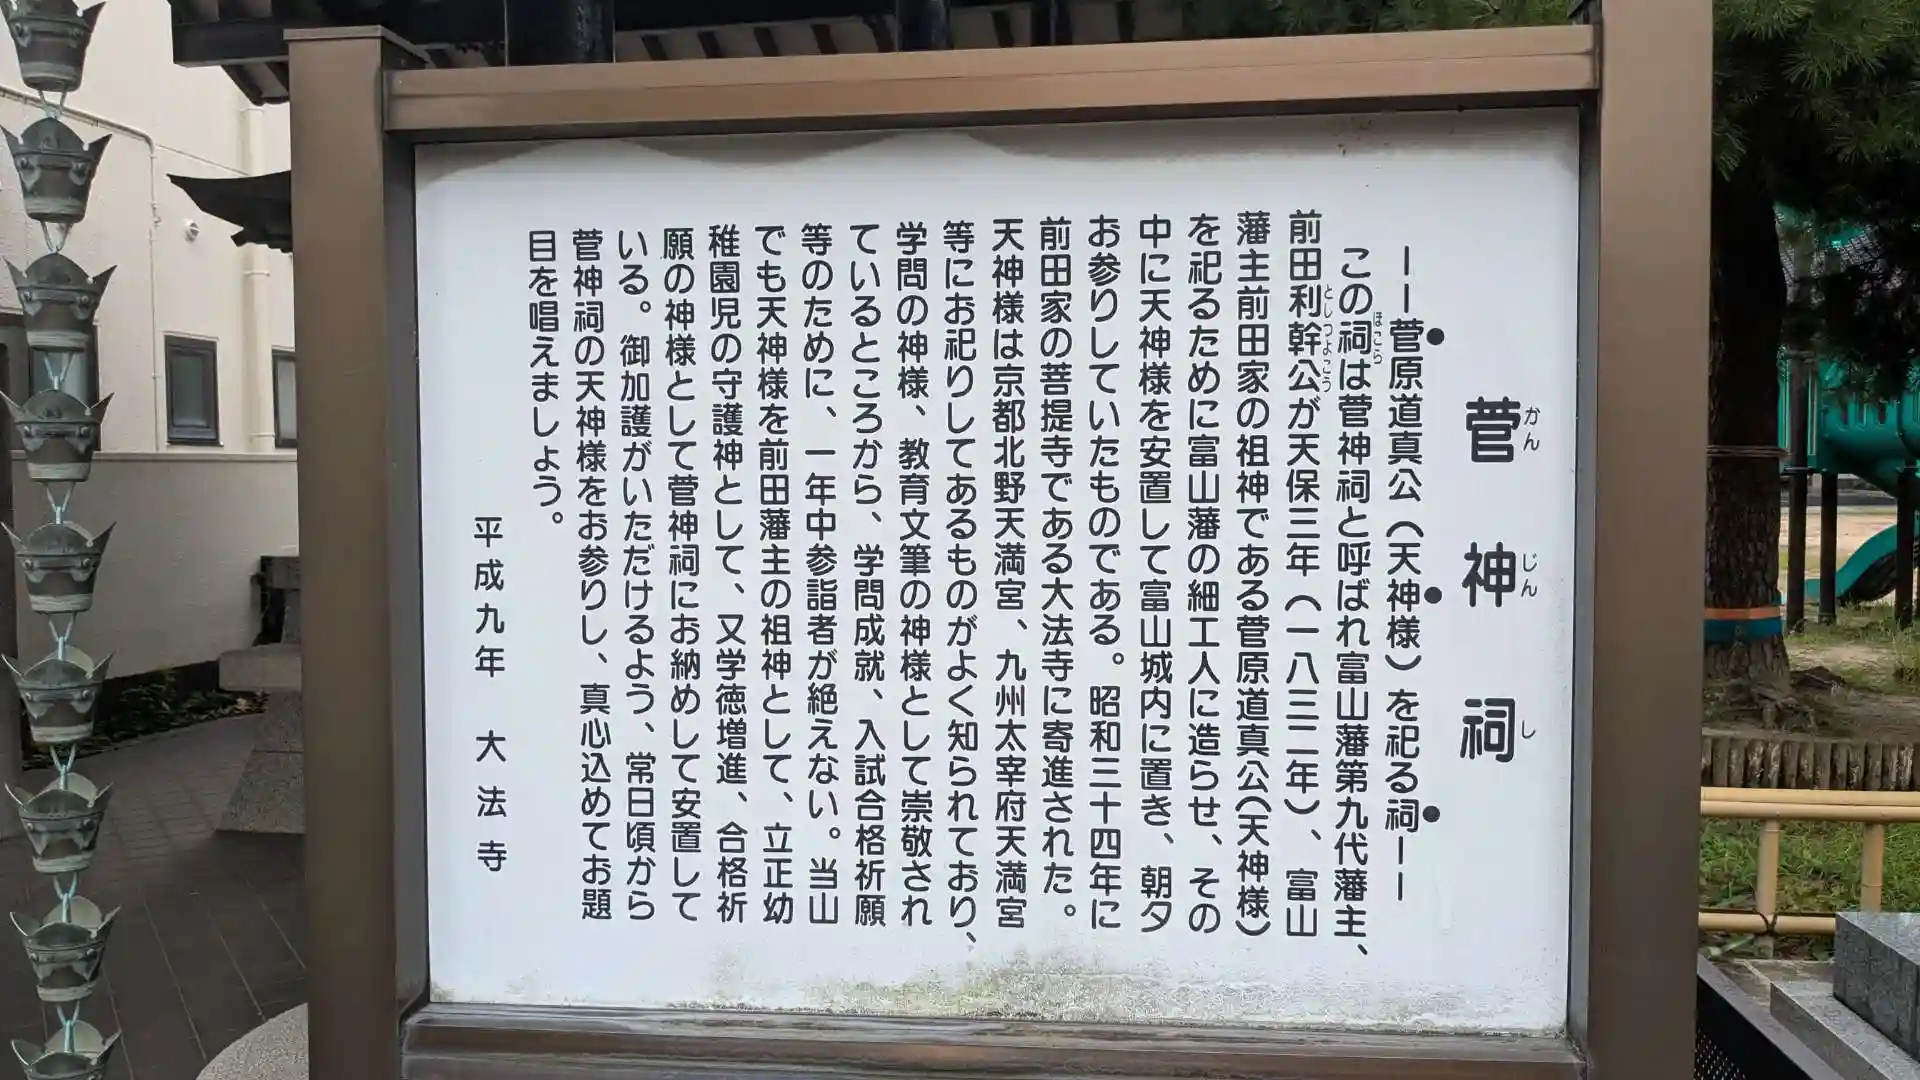 菅神祠
かんじんし
――菅原道真公（天神様）を祀る祠――
この祠は菅神祠と呼ばれ富山藩第九代藩主、
ほこら
前田利幹公が天保三年（一八三二年）、富山
としつよこう
藩主前田家の祖神である菅原道真公（天神様）
を祀るために富山藩の細工人に造らせ、その
中に天神様を安置して富山城内に置き、朝夕
お参りしていたものである。昭和三十四年に
前田家の菩提寺である大法寺に寄進された。
天神様は京都北野天満宮、九州太宰府天満宮
等にお祀りしてあるものがよく知られており、
学問の神様、教育文筆の神様として崇敬され
ているところから、学問成就、入試合格祈願
等のために、一年中参詣者が絶えない。当山
でも天神様を前田藩主の祖神として、立正幼
稚園児の守護神として、又学徳増進、合格祈
願の神様として菅神祠にお納めして安置して
いる。御加護がいただけるよう、常日頃から
菅神祠の天神様をお参りし、真心込めてお題
目を唱えましょう。
平成九年　大法寺